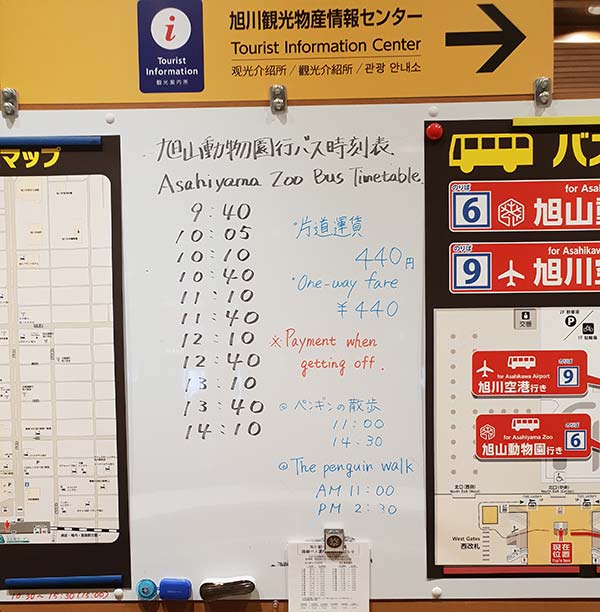 旭川観光物産情報センター
Tourist Information Center
观光介绍所／觀光介紹所／관광 안내소
i
Tourist
Information
観光案内所
マップ
旭山動物園行バス時刻表
Asahiyama Zoo Bus Timetable.
9:40
10:05
10:10
10:40
11:10
11:40
12:10
12:40
13:10
13:40
14:10
◦片道運賃
440円
◦One-way fare
¥440
※Payment when
getting off.
◎ペンギンの散歩
11:00
14:30
◎The penguin walk
AM 11:00
PM 2:30
バス
for Asa
のりば
6
旭山動
for Asahikawa
のりば
9
旭川空
交番
P
2F 駐車場
1F 駐輪場
for Asahikawa Airport
旭川空港行き
のりば
9
for Asahiyama Zoo
旭山動物園行き
のりば
6
West Gates
西改札
現在
位置
10:30～15:30